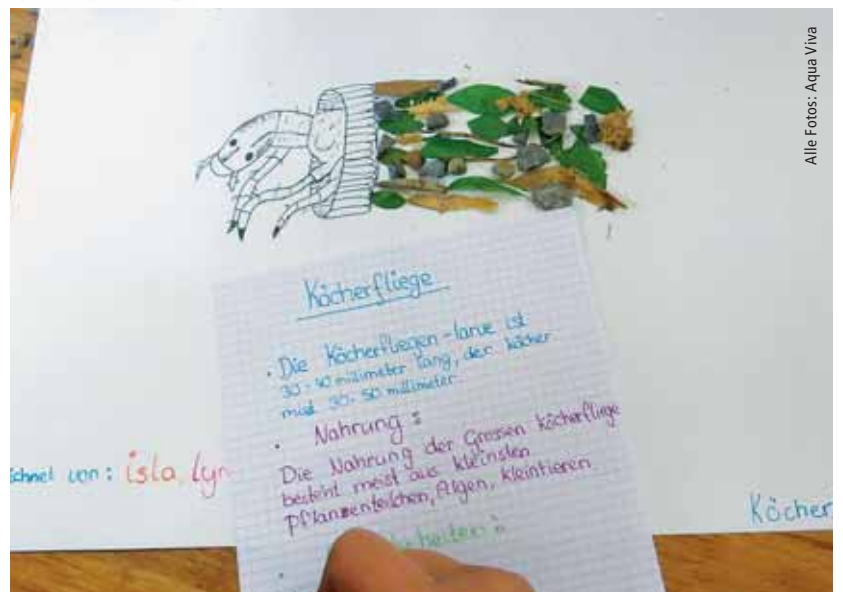 Alle Fotos: Aqua Viva
Köcherfliege
. Die Köcherfliegen-larve ist
30-40 millimeter lang, der köcher
misst 30-50 millimeter.
. Nahrung:
Die Nahrung der Grossen köcherfliege
besteht meist aus kleinsten
pflanzenteilchen, Algen, kleintieren
heiten:
chnet von: isla, lyn
Köcher